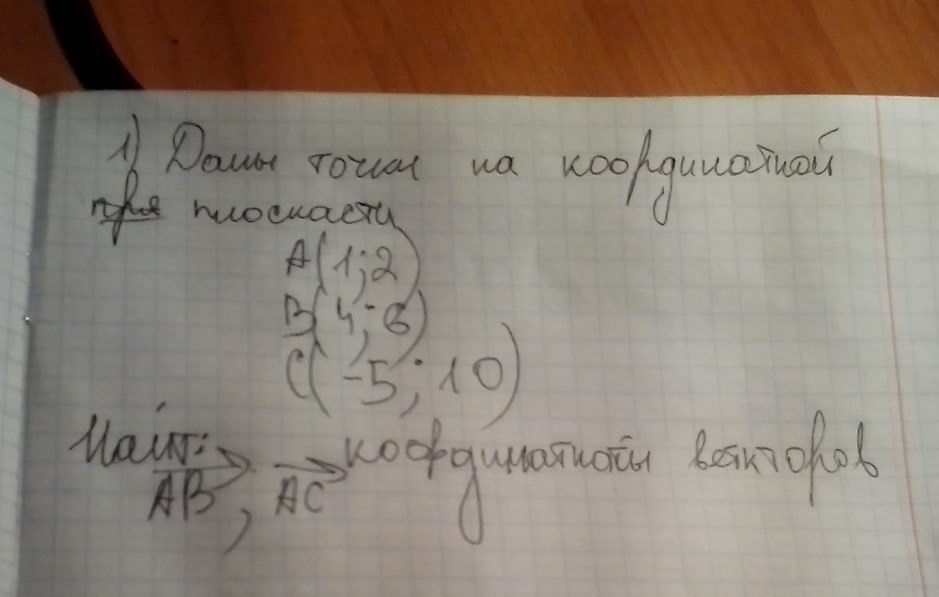 1) Даны точки на координатной
при плоскасти
A(1;2)
B(4;6)
C(-5;10)
Найт: координатноты векторов
AB, AC